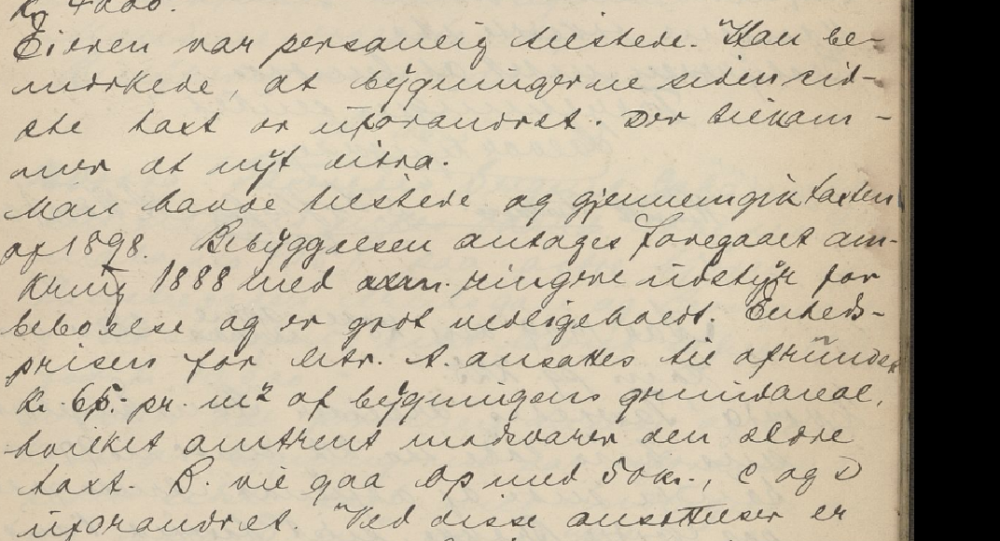 Kr. 4000.
Eieren var personlig tilstede. Han be-
merkede, at bygningerne siden sid-
ste taxt er uforandret. Der tilkom-
mer et nyt litra.
Man havde tilstede og gjennemgik taxten
af 1898. Bebyggelsen antages foregaaet om-
kring 1888 med ringere udstyr for
beboelse og er godt vedligeholdt. Enheds-
prisen for litr. A. ansattes til afrundet
Kr. 65,- pr. m² af bygningens grundareal,
hvilket omtrent modsvarer den ældre
taxt. B. vil gaa op med 50 kr., C og D
uforandret. Ved disse ansættelser er